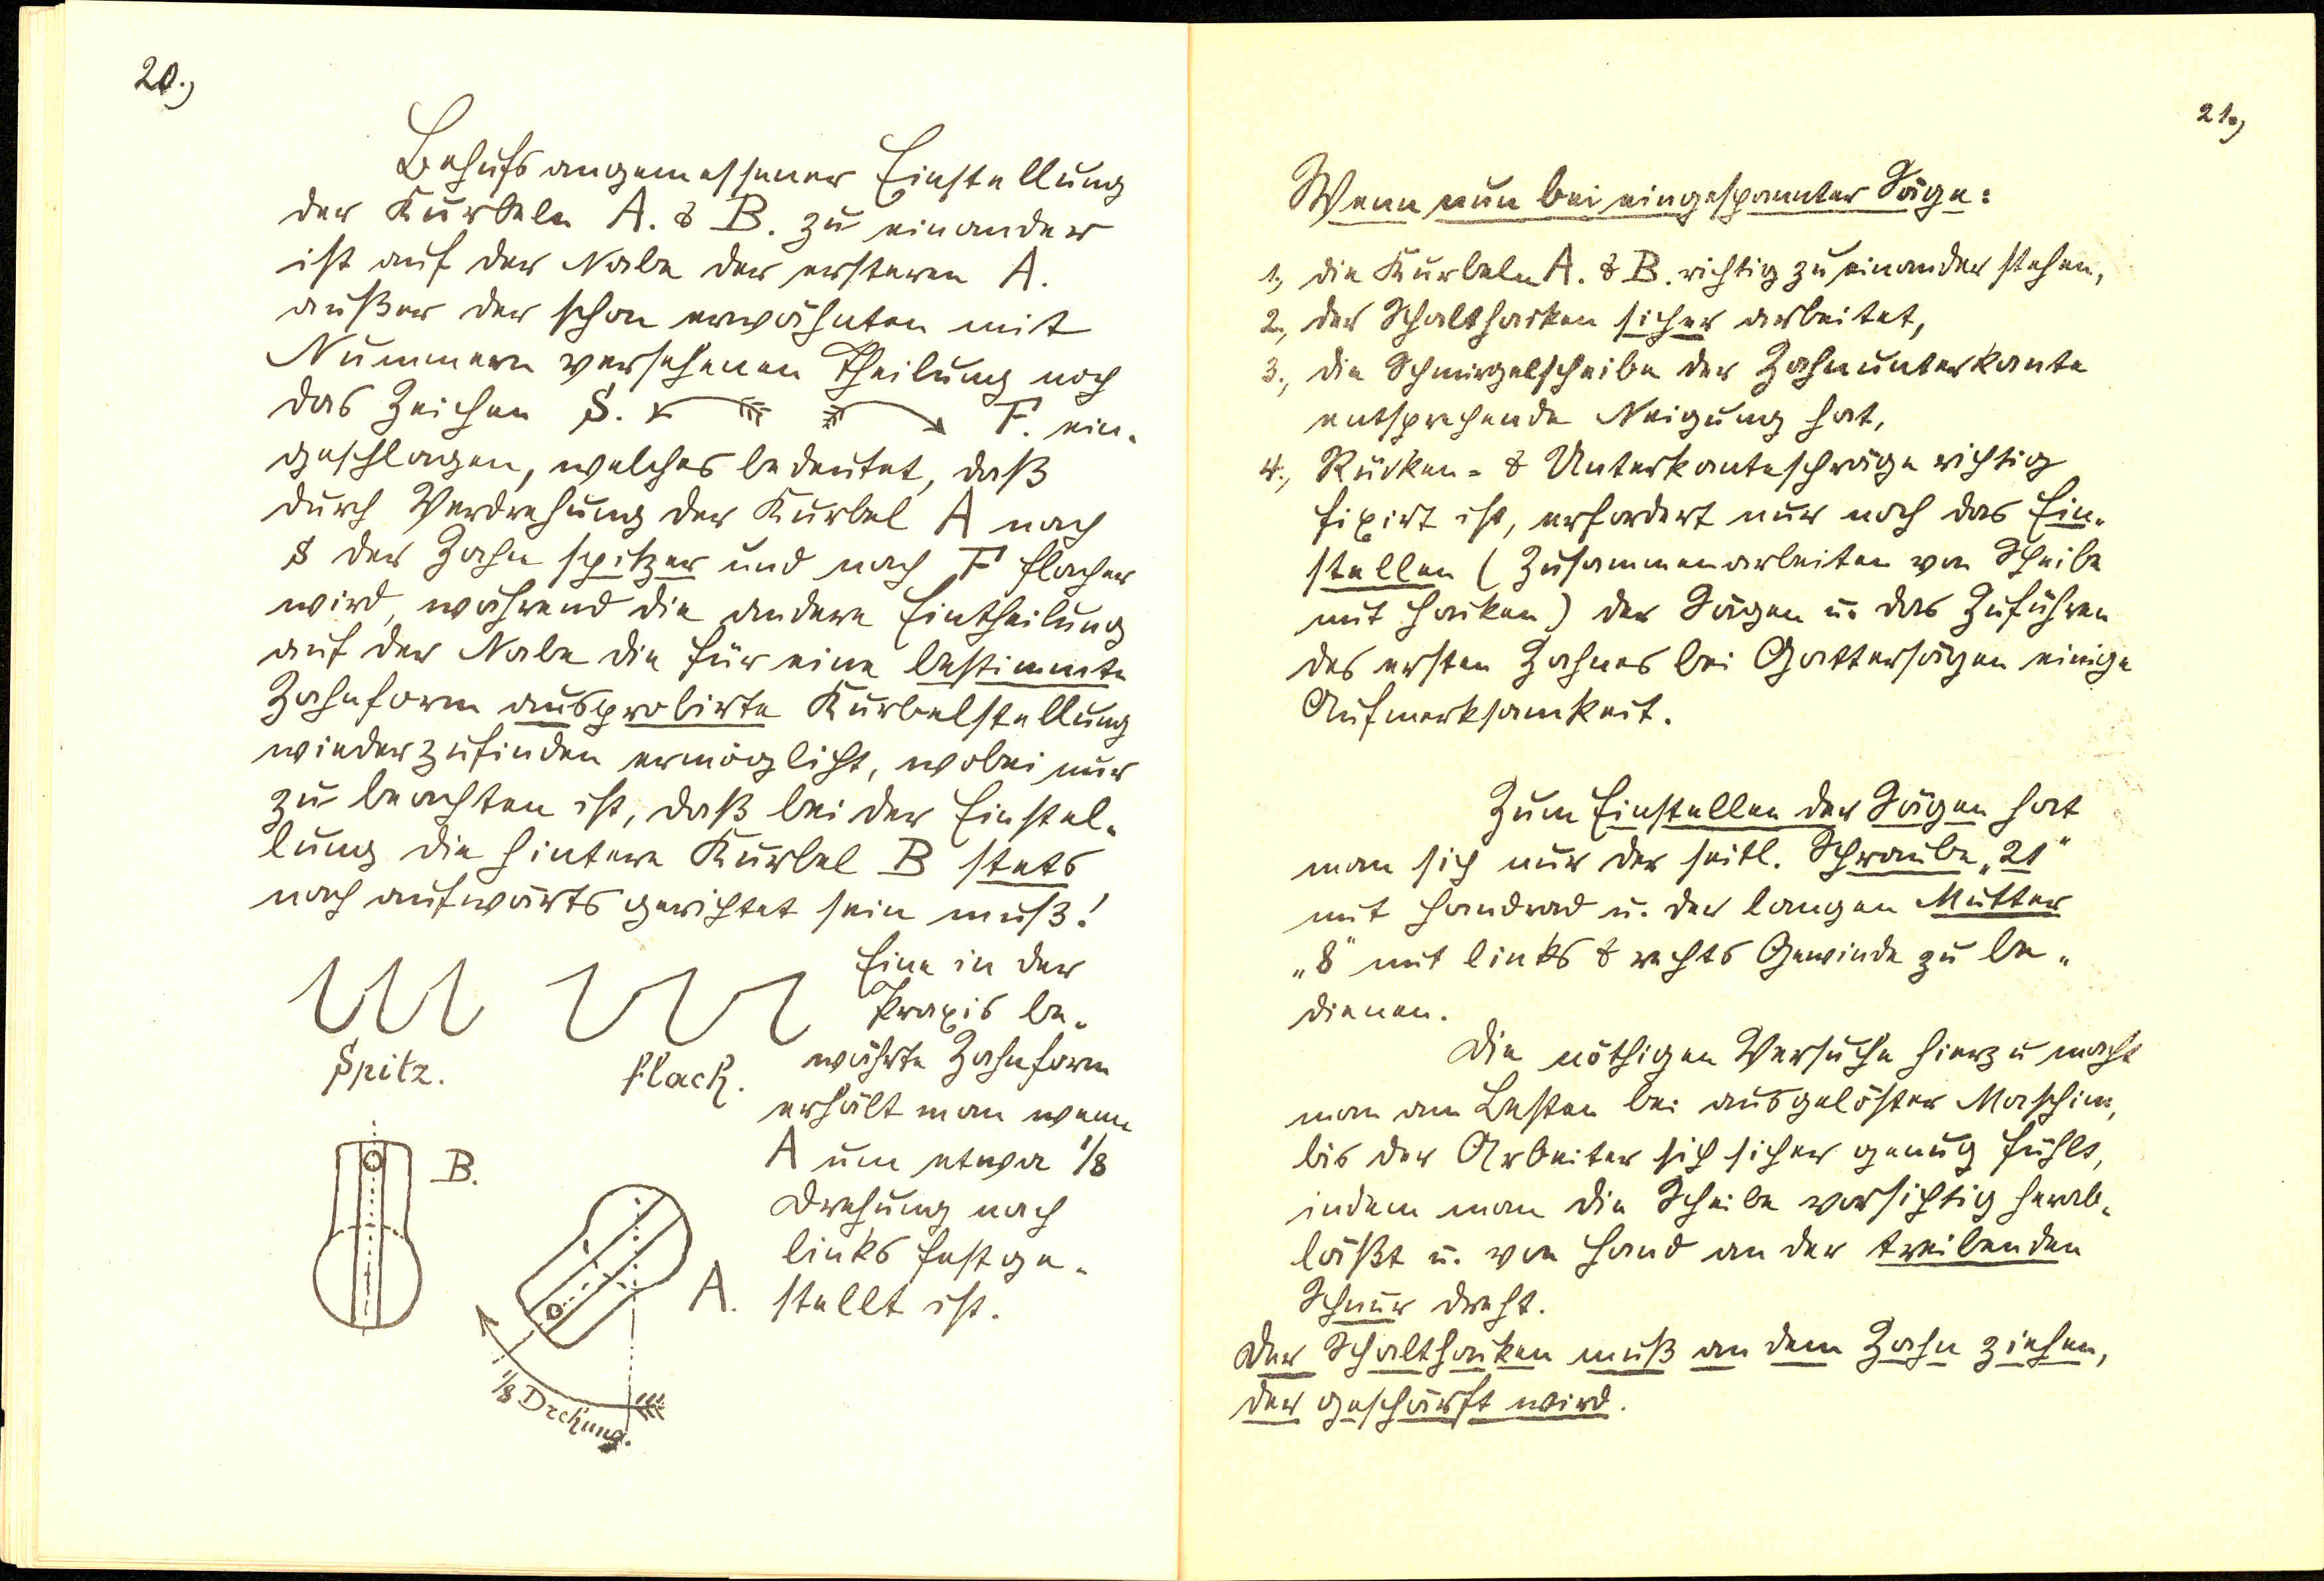 20.,
Behufs angemessener Einstellung
der Kurbeln A. & B. zu einander
ist auf der Nabe der ersteren A.
außer der schon erwähnten mit
Nummern versehenen Theilung noch
das Zeichen S. F. ein-
geschlagen, welches bedeutet, daß
durch Verdrehung der Kurbel A nach
S der Zahn spitzer und nach F flacher
wird, während die andere Eintheilung
auf der Nabe die für eine bestimmte
Zahnform ausprobirte Kurbelstellung
wiederzufinden ermöglicht, wobei nur
zu beachten ist, daß bei der Einstel-
lung die hintere Kurbel B stets
nach aufwärts gerichtet sein muß!
Eine in der
Praxis be-
währte Zahnform
erhält man wenn
A um etwa 1/8
Drehung nach
links festge-
stellt ist.
Spitz.
flach.
B.
A.
1/8 Drehung.
21.,
Wenn nun bei eingespannter Säge:
1., die Kurbeln A. & B. richtig zu einander stehen,
2., der Schalthaken sicher arbeitet,
3., die Schmirgelscheibe der Zahnunterkante
entsprechende Neigung hat,
4., Rücken- & Unterkanteschräge richtig
fixirt ist, erfordert nur noch das Ein-
stellen (Zusammenarbeiten von Scheibe
mit Haken) der Sägen u. das Zuführen
des ersten Zahnes bei Gattersägen einige
Aufmerksamkeit.
Zum Einstellen der Sägen hat
man sich nur der seitl. Schraube „21"
mit Handrad u. der langen Mutter
„8" mit links & rechts Gewinde zu be-
dienen.
Die nöthigen Versuche hierzu macht
man am Besten bei ausgelöster Maschine,
bis der Arbeiter sich sicher genug fühlt,
indem man die Scheibe vorsichtig herab-
läßt u. von Hand an der treibenden
Schnur dreht.
Der Schalthaken muß an dem Zahn ziehen,
der geschärft wird.